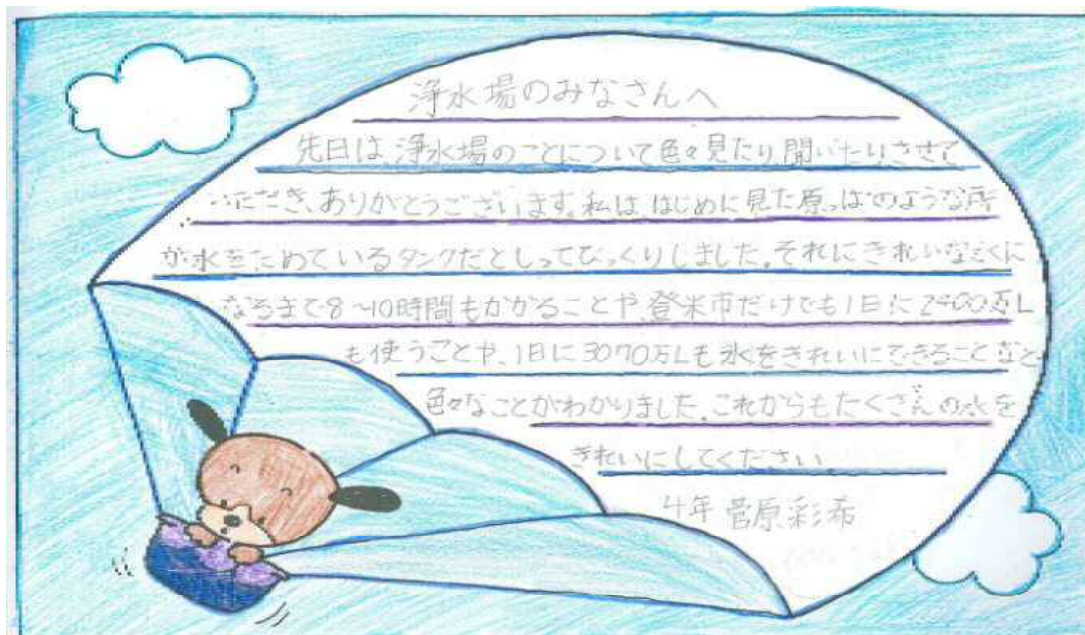 浄水場のみなさんへ
先日は、浄水場のことについて色々見たり、聞いたりさせて
いただき、ありがとうございます。私は、はじめに見た原っぱのような所
が水をためているタンクだとしってびっくりしました。それにきれいな水に
なるまで8~10時間もかかることや、登米市だけでも1日に2400万L
も使うことや、1日に3070万Lも水をきれいにできることなど
色々なことがわかりました。これからもたくさんの水を
きれいにしてください。
4年 菅原彩希